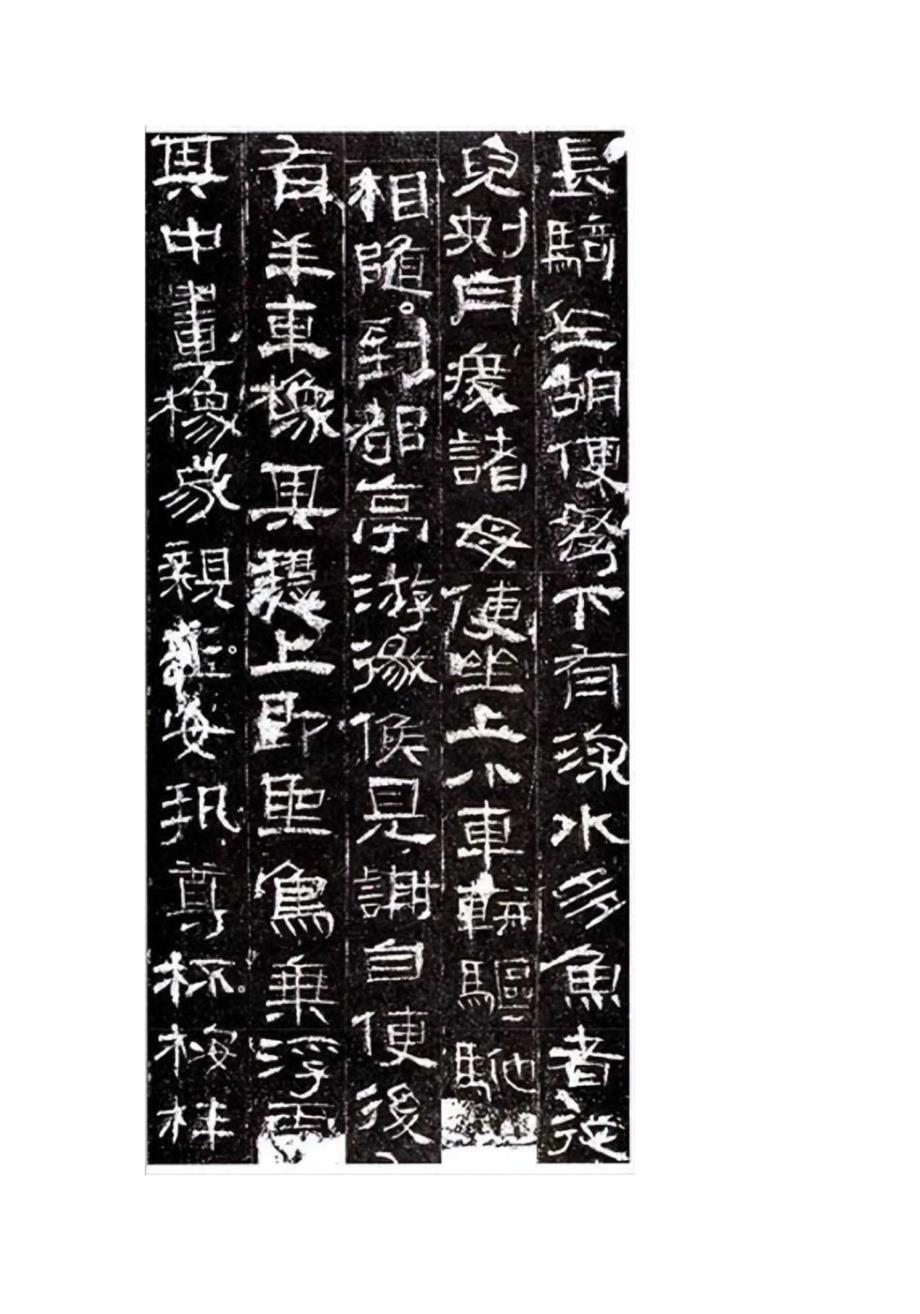 長騎佐胡便弩下有深水多魚者從
兒刺舟渡諸母使坐上小車軿驅馳
相隨到都亭游徼候見謝自便後
有羊車橡其槥上即聖鳥乘浮雲
其中畫橡家親玉女執尊杯桉柈